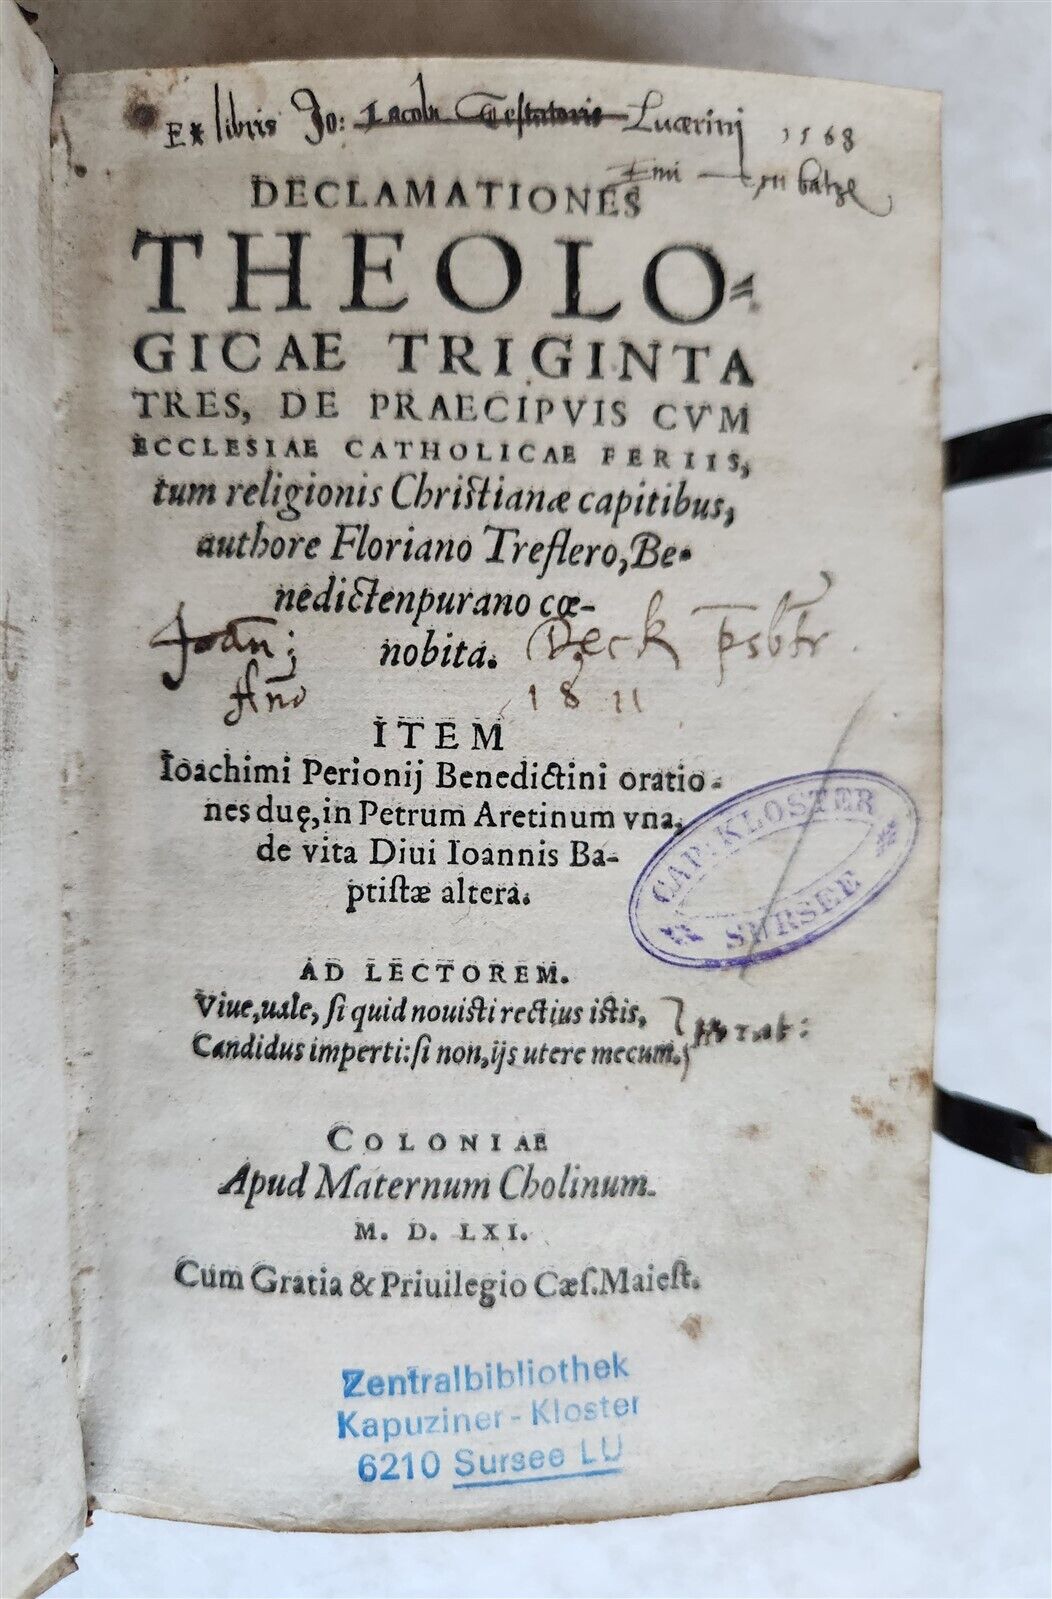 Ex libris Jo: Iacobi Testatoris Lucerini 1568
Emi batze
DECLAMATIONES
THEOLO-
GICAE TRIGINTA
TRES, DE PRAECIPVIS CVM
ECCLESIAE CATHOLICAE FERIIS,
tum religionis Christianæ capitibus,
authore Floriano Treflero, Be-
nedictenpurano cœ-
nobita.
Joan̄: Deck p̄sbt̄r.
An̄o 1811
ITEM
Ioachimi Perionij Benedictini oratio-
nes duę, in Petrum Aretinum vna,
de vita Diui Ioannis Ba-
ptistæ altera.
CAP. KLOSTER
SURSEE
AD LECTOREM.
Viue, uale, ſi quid nouisti rectius istis,
Candidus imperti: ſi non, ijs utere mecum.
Horat:
COLONIAE
Apud Maternum Cholinum.
M. D. LXI.
Cum Gratia & Priuilegio Cæſ. Maieſt.
Zentralbibliothek
Kapuziner-Kloster
6210 Sursee LU